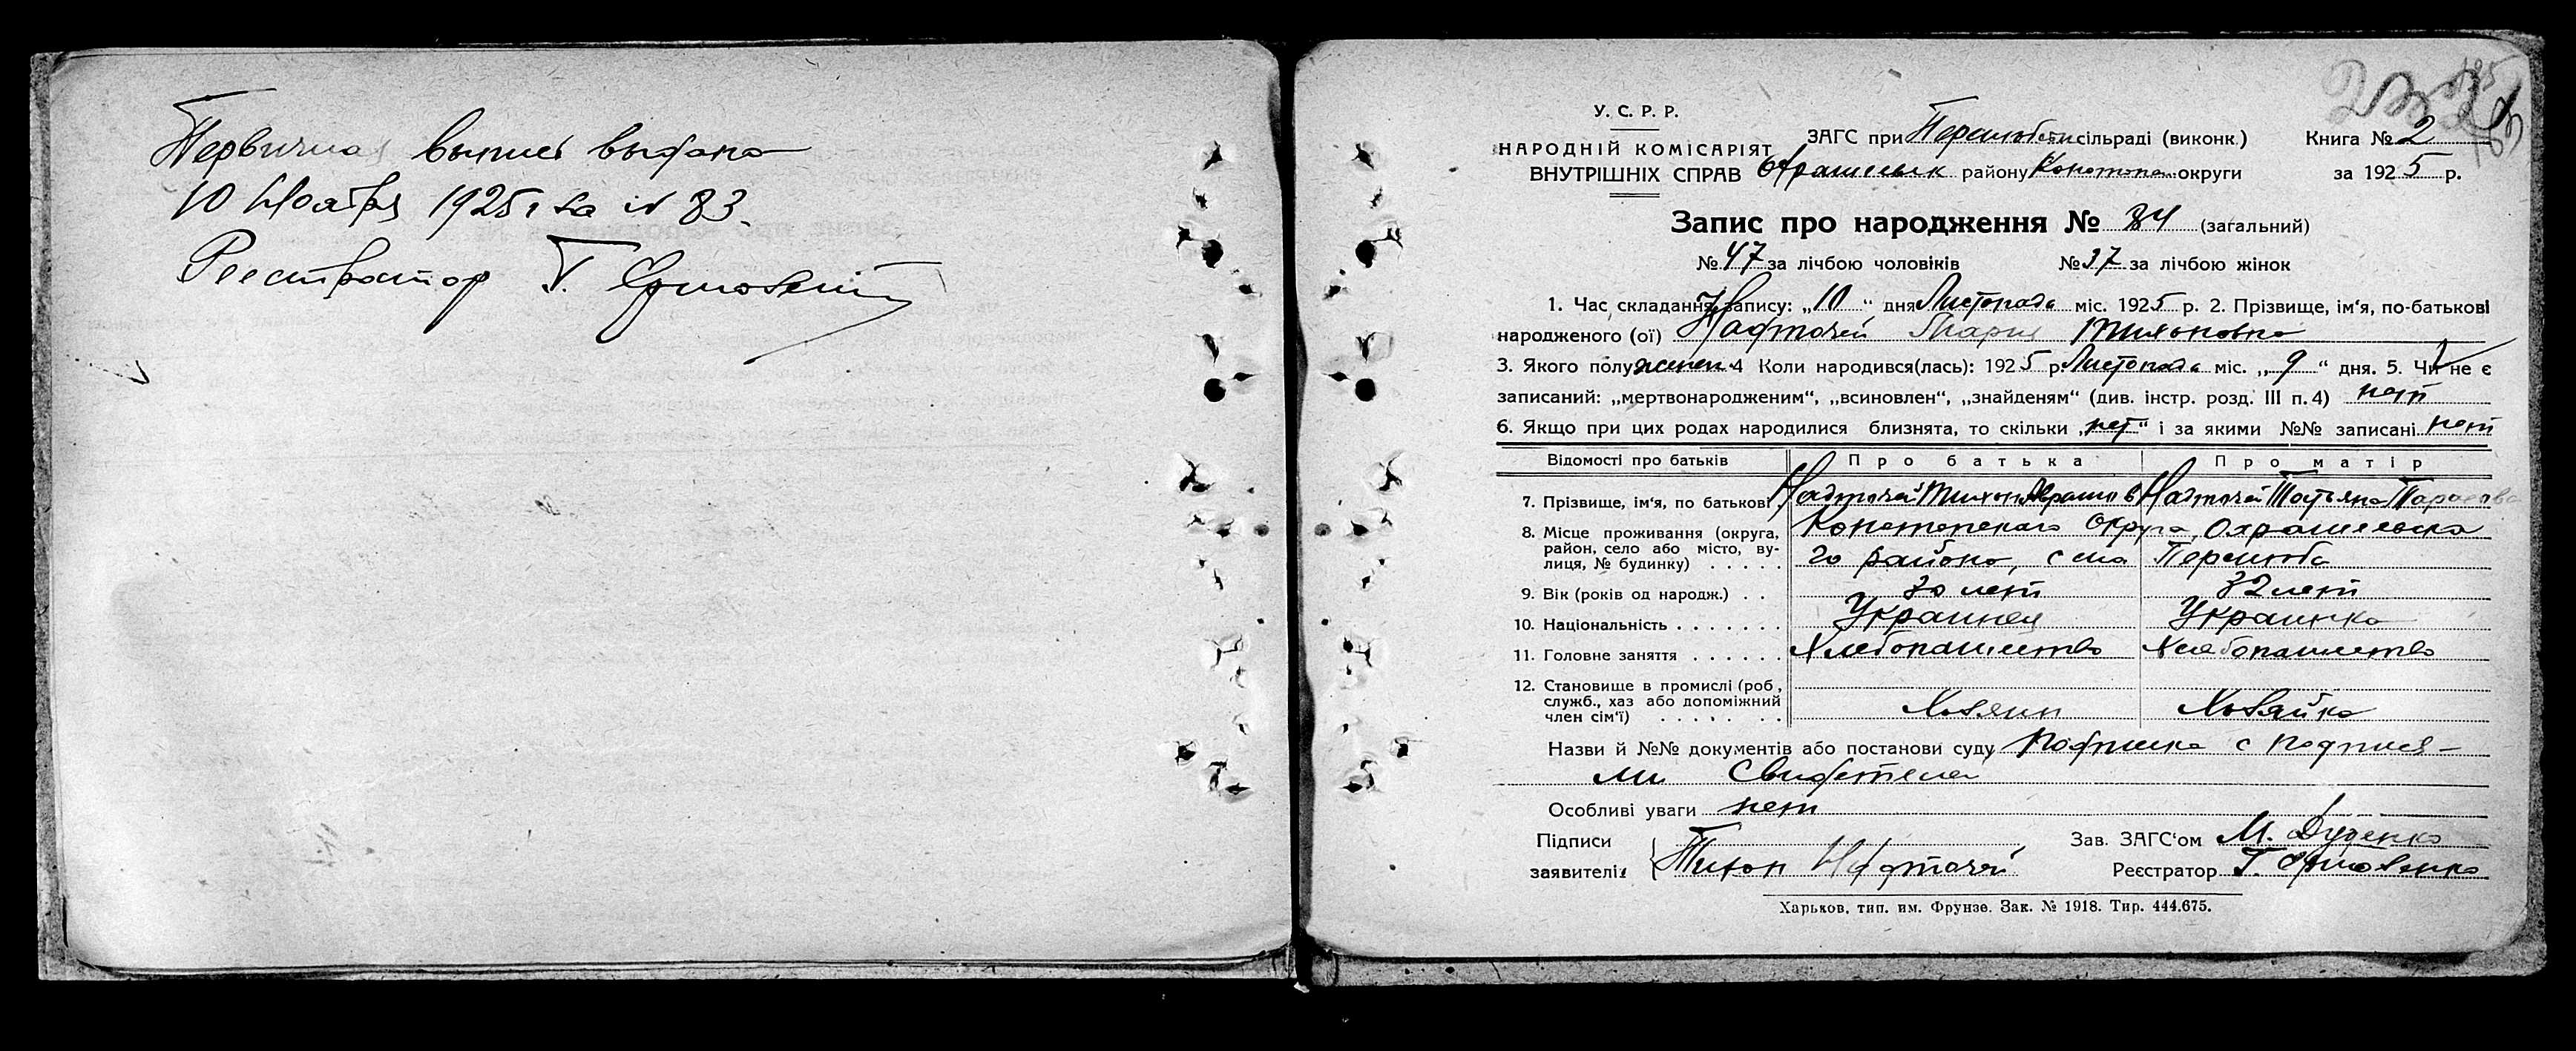 Первичная выпись выдана
10 Ноября 1925 г за № 83.
Реестратор Г.
У. С. Р. Р.
НАРОДНІЙ КОМІСАРІЯТ
ВНУТРІШНІХ СПРАВ
ЗАГС при сільраді (виконк.)
районуКонотопс. округи
Книга № 2
за 1925 р.
Запис про народження № 84 (загальний)
№ 47 за лічбою чоловіків № 37 за лічбою жінок
1. Час складання запису: „10“ дня Листопада міс. 1925 р. 2. Прізвище, ім‘я, по-батькові
народженого (ої) Надточей Мария Тихоновна
3. Якого полу женск 4 Коли народився(лась): 1925 р. Листопада міс. „9“ дня. 5. Чи не є
записаний: „мертвонародженим“, „всиновлен“, „знайденям“ (див. інстр. розд. III п. 4) нет
6. Якщо при цих родах народилися близнята, то скільки „нет“ і за якими №№ записані нет
Відомості про батьків Про батька Про матір
7. Прізвище, ім‘я, по батькові Надточей Тихон Надточей Татьяна Тарасова
8. Місце проживання (округа,
район, село або місто, ву-
лиця, № будинку) . . . . .
Конотопского Округа,
го района, села Перелюба
9. Вік (років од народж.) . . 30 лет 32 лет
10. Національність . . . . . . . Украинец Украинка
11. Головне заняття . . . . . . Хлебопашество Хлебопашество
12. Становище в промислі (роб.,
служб., хаз або допоміжний
член сім‘ї) . . . . . .
Хозяин Хозяйка
Назви й №№ документів або постанови суду Подписка с подпися-
ми Свидетелей
Особливі уваги нет
Підписи
заявителів Тихон Надточей
Зав. ЗАГС‘ом М. Дуденко
Реєстратор Г.
Харьков, тип. им. Фрунзе. Зак. № 1918. Тир. 444.675.